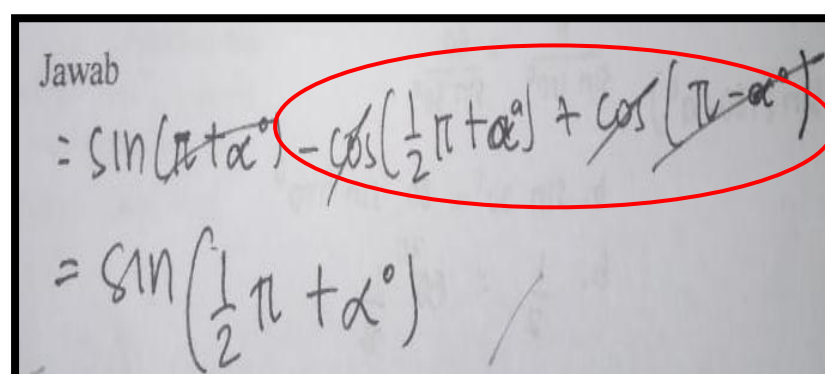 Jawab
= sin(π+α°) - cos(½π+α°) + cos(π-α°)
= sin(½π + α°)